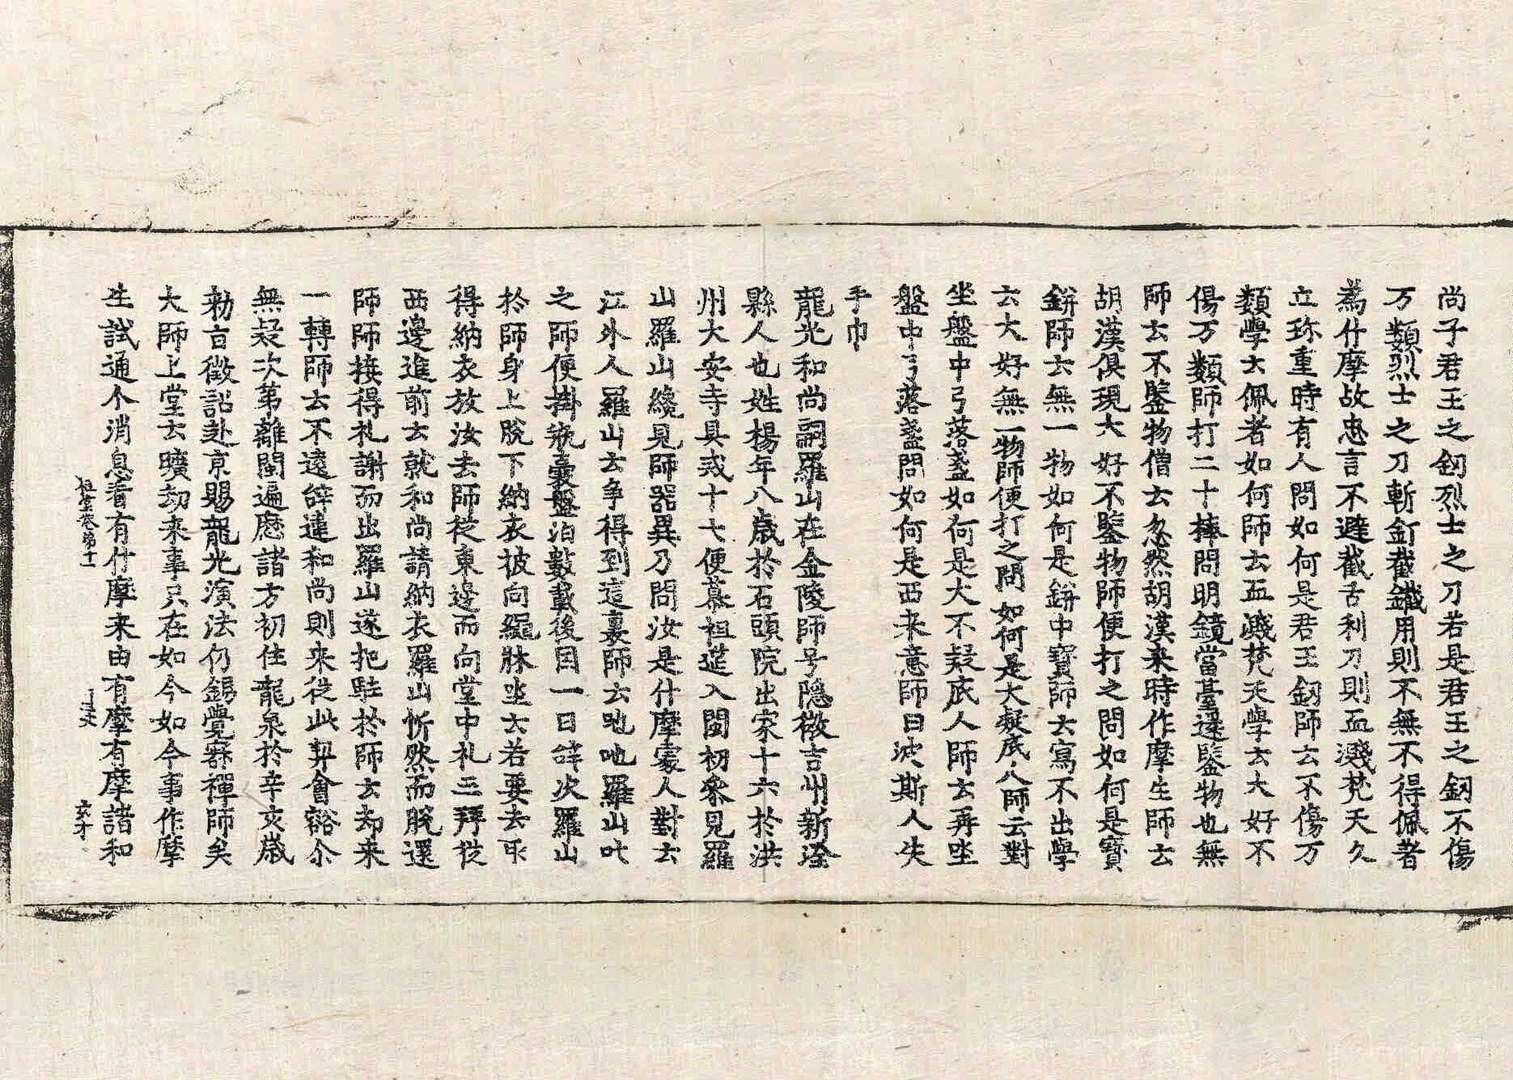 尚子君王之釼烈士之刀若是君王之釼不傷
万類烈士之刀斬釘截鐵用則不無不得佩者
為什摩故忠言不避截舌利刀則血濺梵天久
立珎重時有人問如何是君王釼師云不傷万
類學云佩者如何師云血濺梵天學云大好不
傷万類師打二十棒問明鏡當臺還鑒物也無
師云不鑒物僧云忽然胡漢来時作摩生師云
胡漢俱現大好不鑒物師便打之問如何是寶
鉼師云無一物如何是鉼中寶師云寫不出學
云大好無一物師便打之問如何是大凝底人師云對
坐盤中弓落盞如何是大不疑底人師云再坐
盤中弓落盞問如何是西来意師曰波斯人失
手巾
龍光和尚嗣羅山在金陵師号隱微吉州新淦
縣人也姓楊年八歲於石頭院出家十六於洪
州大安寺具戒十七便慕祖筵入閩初叅見羅
山羅山纔見師器異乃問汝是什摩處人對云
江外人羅山云争得到這裏師云吔吔羅山叱
之師便掛瓶囊盤泊數載後因一日辞次羅山
於師身上脫下納衣披向繩牀坐云若要去取
得納衣放汝去師從東邊而向堂中礼三拜從
西邊進前云就和尚請納衣羅山忻然而脫還
師師接得礼謝而出羅山遂把駐於師云却来
一轉師云不遠辞違和尚則来從此契會豁尒
無疑次第離閩遍歷諸方初住龍泉於辛亥歲
勑旨徵詔赴京賜龍光演法仍錫覺寂禪師矣
大師上堂云曠劫来事只在如今如今事作摩
生試通个消息看有什摩来由有摩有摩諸和
祖堂卷第十二